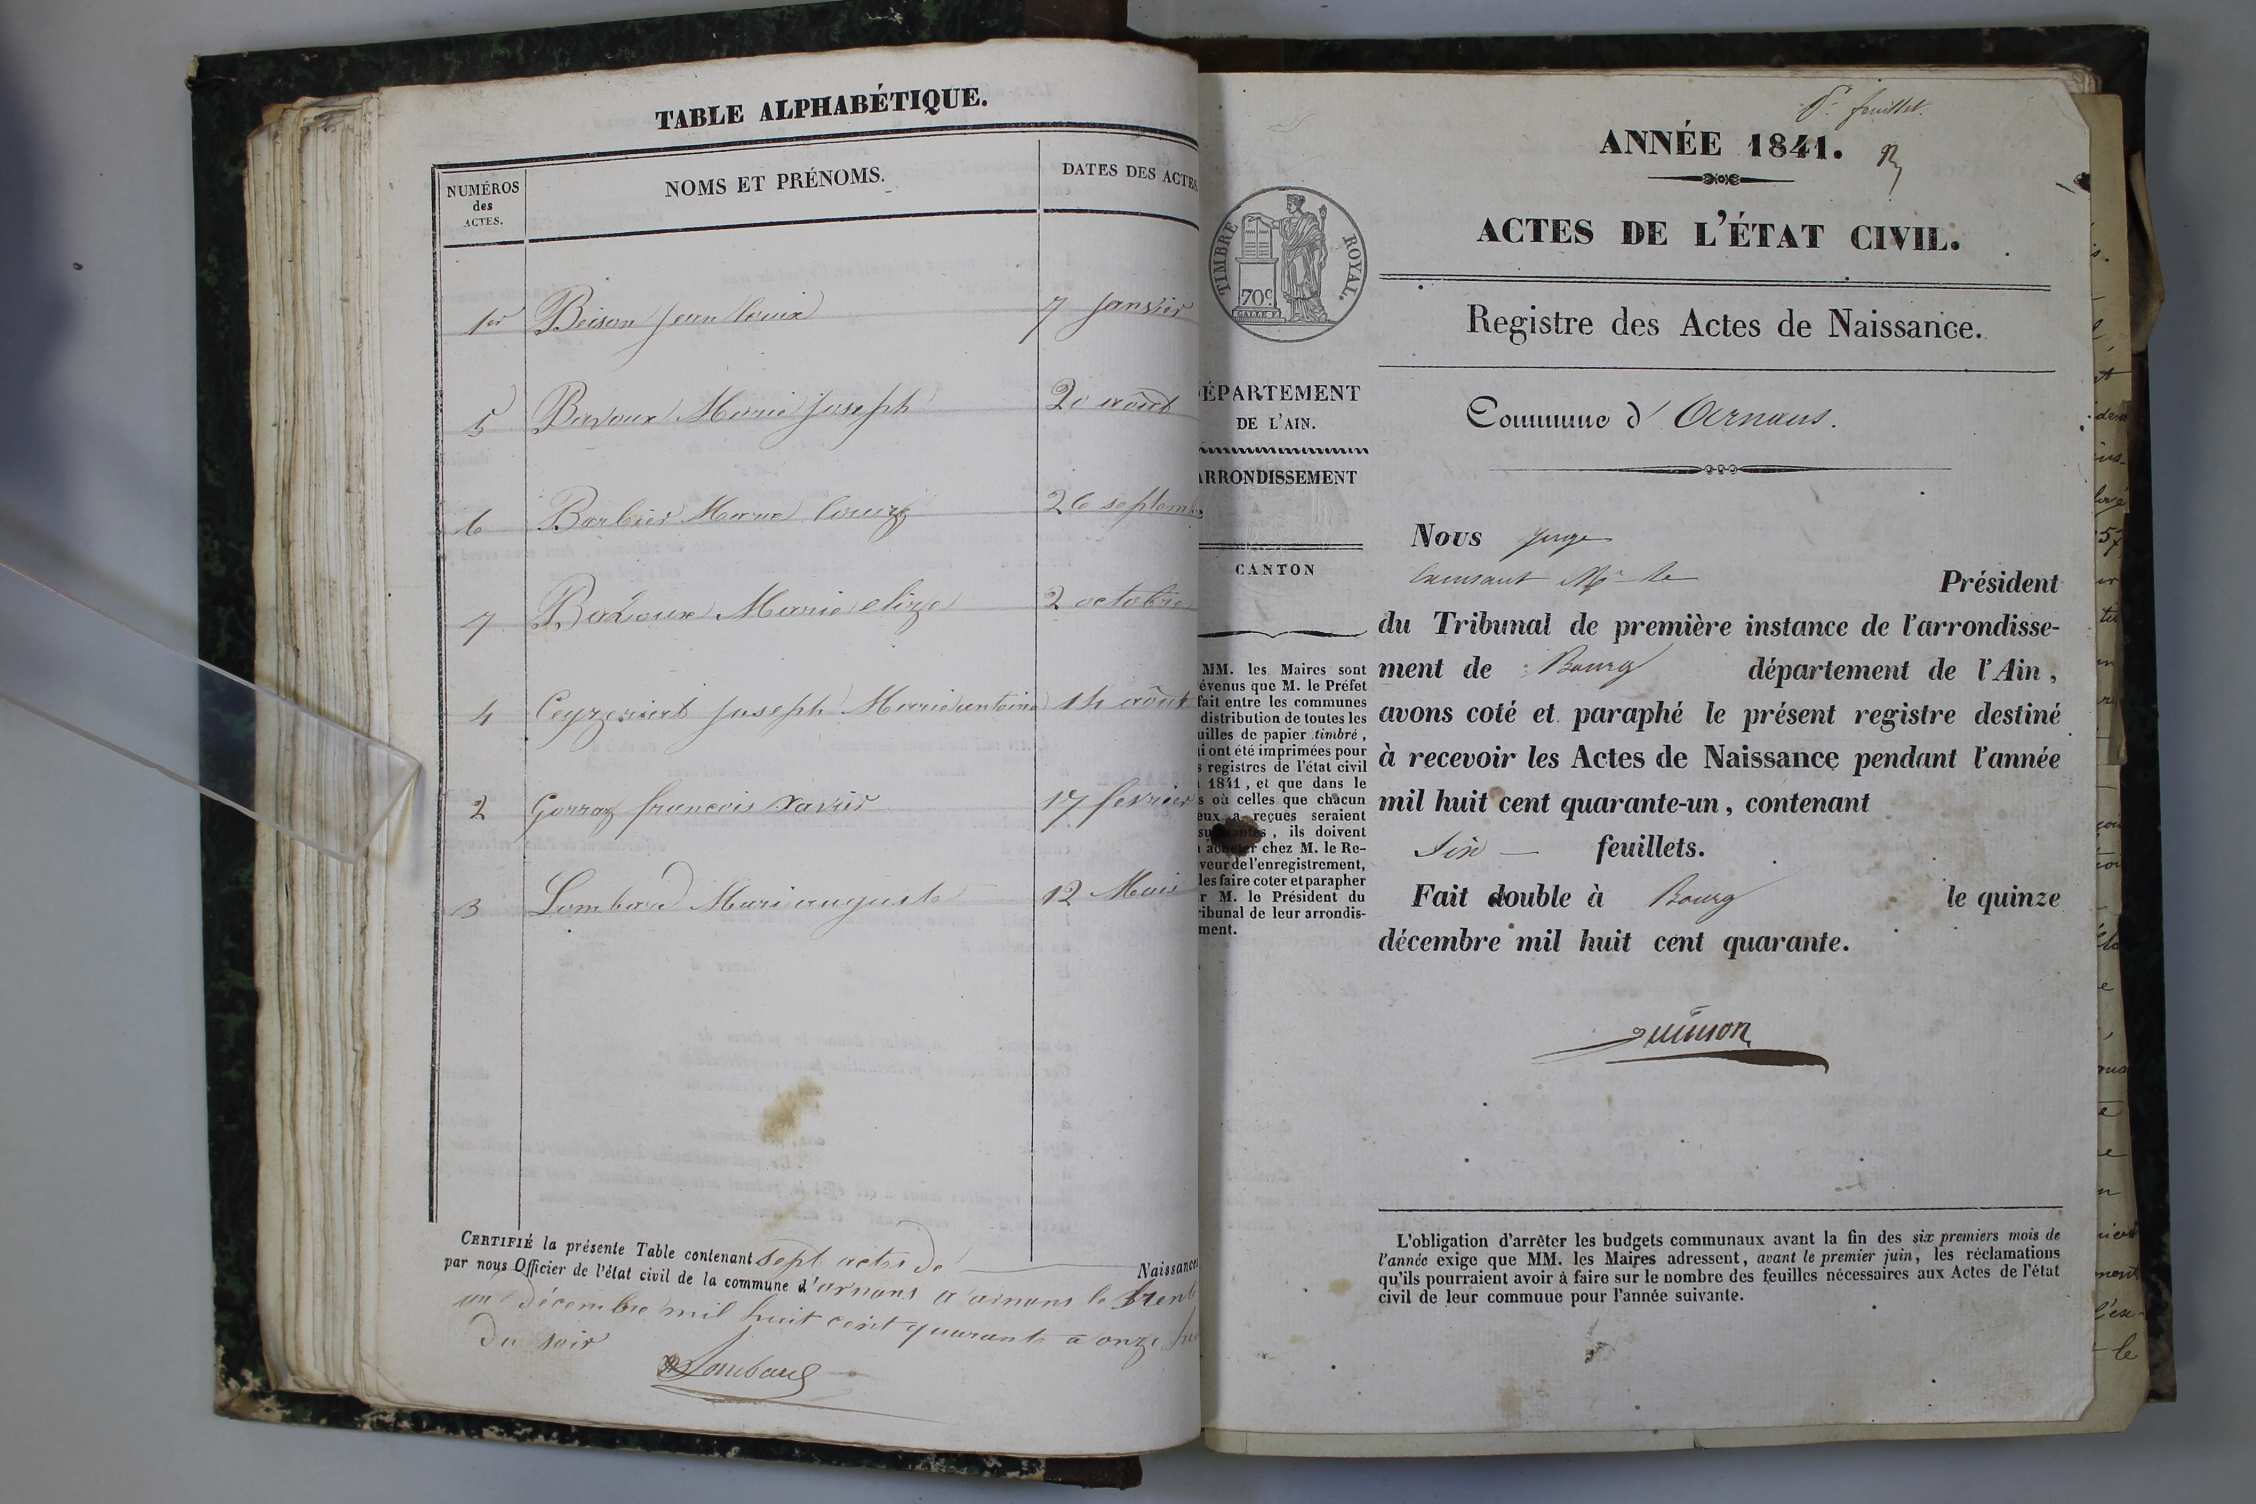 TABLE ALPHABÉTIQUE.
NUMÉROS des ACTES.
NOMS ET PRÉNOMS.
DATES DES ACTES
1er Beison jean louis 7 janvier
5 Bavoux Marie joseph 20 août
6 Barbier Marie 26 septemb
7 Bavoux Marie elize 2 octobre
4 Ceyzeriat joseph Marie antoine 14 août
2 Gorraz françois Xavier 17 fevrier
3 Lombard Marie auguste 12 Mai
CERTIFIÉ la présente Table contenant sept actes de Naissances
par nous Officier de l'état civil de la commune d'arnans a arnans le trente
un décembre mil huit cent quarante a onze
du soir
Lombard
feuillet.
ANNÉE 1841.
ACTES DE L'ÉTAT CIVIL.
TIMBRE ROYAL.
70c.
Registre des Actes de Naissance.
ÉPARTEMENT
DE L'AIN.
Commune d'Arnans.
RRONDISSEMENT
CANTON
Nous juge
Mr le Président
du Tribunal de première instance de l'arrondisse-
ment de Bourg département de l'Ain,
avons coté et paraphé le présent registre destiné
à recevoir les Actes de Naissance pendant l'année
mil huit cent quarante-un, contenant
Six feuillets.
Fait double à Bourg le quinze
décembre mil huit cent quarante.
MM. les Maires sont
évenus que M. le Préfet
fait entre les communes
distribution de toutes les
uilles de papier timbré,
i ont été imprimées pour
s registres de l'état civil
1841, et que dans le
s où celles que chacun
eux a reçues seraient
, ils doivent
chez M. le Re-
veur de l'enregistrement,
les faire coter et parapher
r M. le Président du
ribunal de leur arrondis-
ment.
L'obligation d'arrêter les budgets communaux avant la fin des six premiers mois de
l'année exige que MM. les Maires adressent, avant le premier juin, les réclamations
qu'ils pourraient avoir à faire sur le nombre des feuilles nécessaires aux Actes de l'état
civil de leur commune pour l'année suivante.